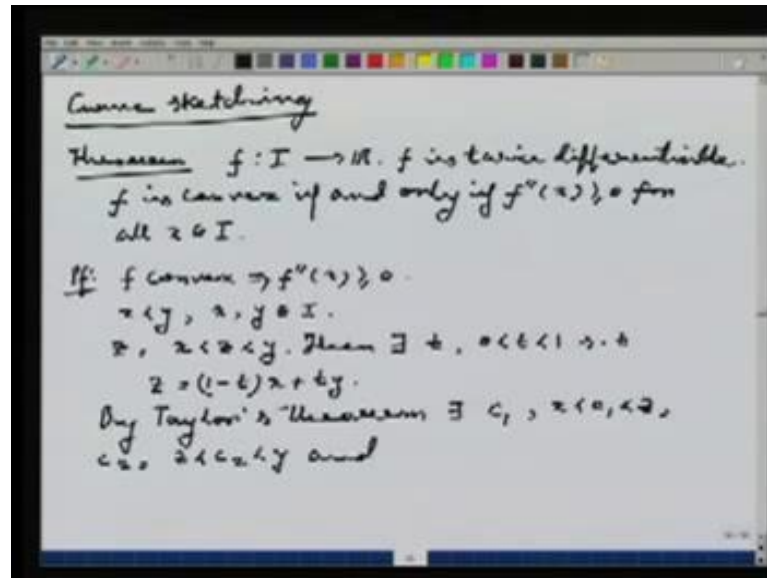 Curve sketching
Theorem f : I → ℝ. f is twice differentiable.
f is convex if and only if f"(x) ≥ 0 for
all x ∈ I.
Pf: f convex ⇒ f"(x) ≥ 0.
x < y, x, y ∈ I.
z, x < z < y. Then ∃ t, 0 < t < 1 s.t
z = (1-t)x + ty.
By Taylor's theorem ∃ c₁, x < c₁ < z,
c₂, z < c₂ < y and